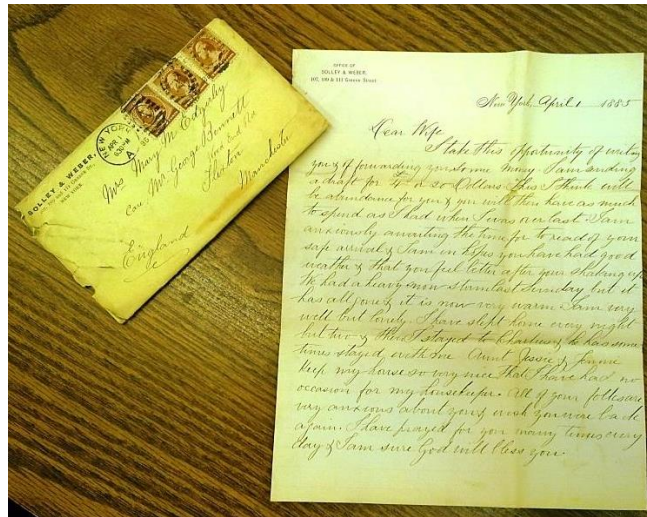 SOLLEY & WEBER,
NEW YORK
NEW YORK
APR 1
630 PM
85
A
Mrs Mary M Edgerley
Care Mr George Bennett
Flixton
Manchester
England
OFFICE OF
SOLLEY & WEBER,
107, 109 & 111 Greene Street.
New York, April 1 1885
Dear Wife
I take this opportunity of writing
you & of forwarding you some money I am sending
a draft for £4 or 20 Dollars this I think will
be abundance for you & you will then have as much
to spend as I had when I was over last. I am
anxiously awaiting the time for to read of your
safe arrival & I am in hopes you have had good
weather & that you feel better after your shaking up
We had a heavy snow storm last Sunday but it
has all gone & it is now very warm I am very
well but lonely I have slept home every night
but two & then I stayed to Charlies & he has some
times stayed with me Aunt Jessie & Jennie
Keep my house so very nice That I have had no
occasion for my housekeeper. All of your folks are
very anxious about you & wish you were back
again. I have prayed for you many times every
day & I am sure God will bless you